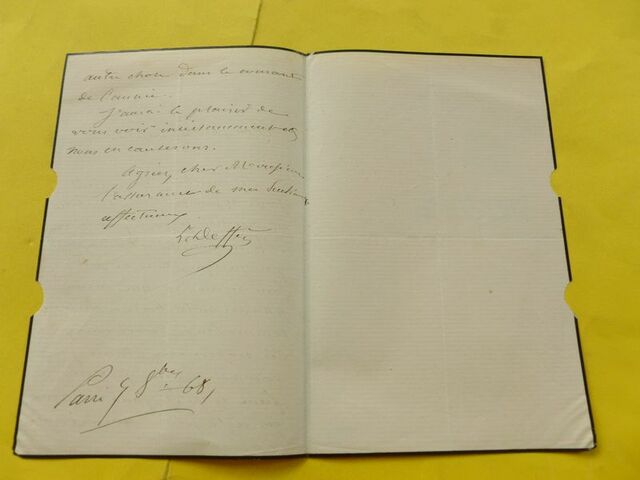 autre chose dans le courant
de l'année.
J'aurai le plaisir de
vous voir incessamment et
nous en causerons.
Agréez, cher Monsieur,
l'assurance de mes sentiments
affectueux
Paris 9 8bre 68,